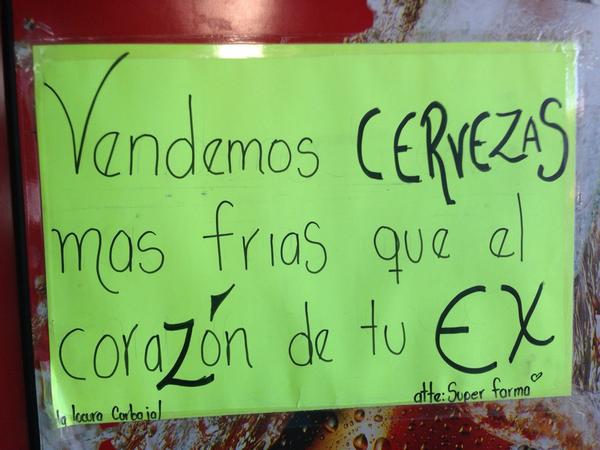 Vendemos CERVEZAS
mas frias que el
corazón de tu EX
atte: Super farma
la locura Carbajal